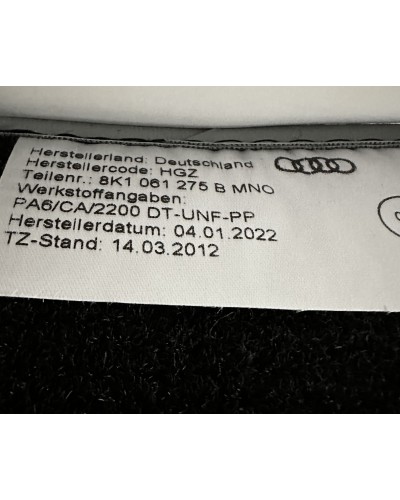 Herstellerland: Deutschland
Herstellercode: HGZ
Teilenr.: 8K1 061 275 B MNO
Werkstoffangaben:
PA6/CA/2200 DT-UNF-PP
Herstellerdatum: 04.01.2022
TZ-Stand: 14.03.2012